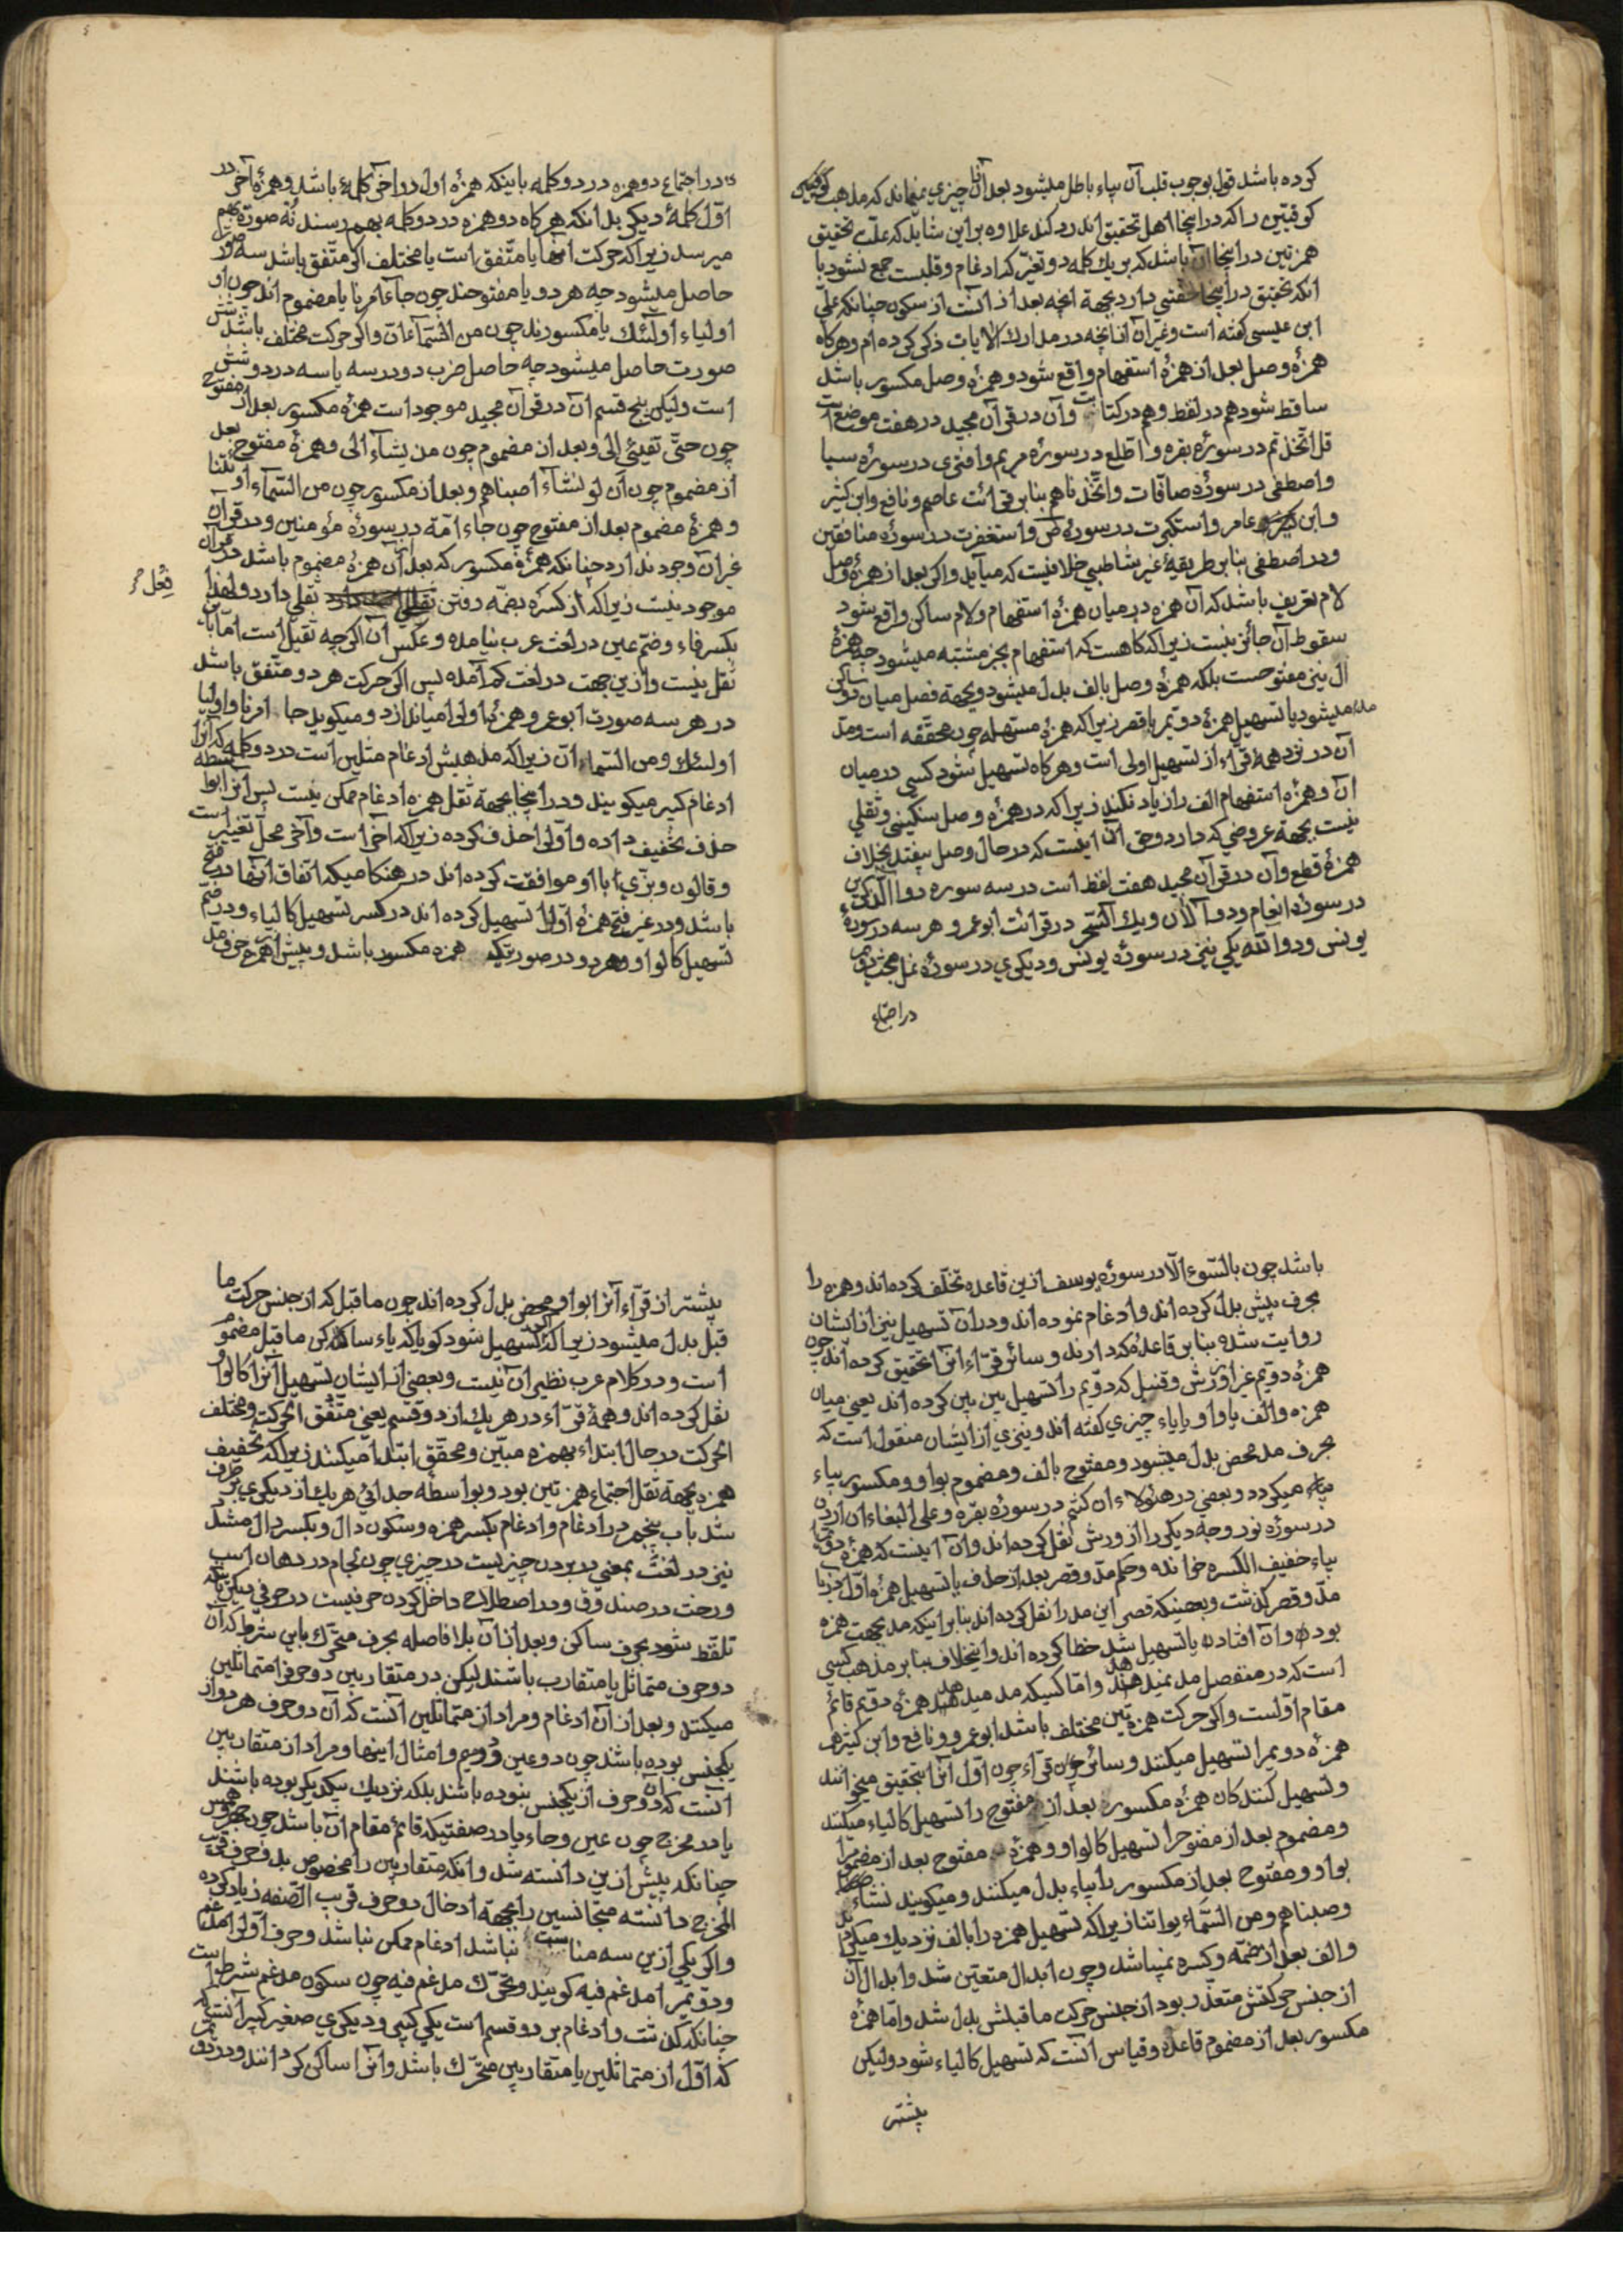 کرده باشد قول بوجوب قلب آن بیاء باطل میشود بعد از آن چیزی نمیماند که مذهب
کوفیین را که در اینجا اهل تحقیق اند رد کند علاوه بر این شاید که علت تحقیق
همزتین در اینجا آن باشد که بر یك کلمه دو تغیّر که ادغام و قلبست جمع نشود یا
آنکه تحقیق در اینجا خفتی دارد بجهة آنچه بعد از آنست از سکون چنانکه علی
ابن عیسی کفته است و غیر آن از آنچه در مدارك الایات ذکر کرده ام و هرکاه
همزهٔ وصل بعد از همزهٔ استفهام واقع شود و همزهٔ وصل مکسور باشد
ساقط شود هم در لفظ و هم در کتابت و آن در قرآن مجید در هفت موضع است
قل اتّخذتم در سورهٔ بقره و اطّلع در سورهٔ مریم و افتری در سورهٔ سبا
و اصطفی در سورهٔ صافّات و اتّخذناهم بنابر قرائت عاصم و نافع و ابن کثیر
و ابن عامر و استکبرت در سورهٔ ص و استغفرت در سورهٔ منافقین
و در اصطفی بنابر طریقهٔ غیر شاطبی خلافیست که میآید و اکر بعد از همزهٔ وصل
لام تعریف باشد که آن همزه در میان همزهٔ استفهام و لام ساکن واقع شود
سقوط آن جائز نیست زیرا که کاهست که استفهام بخبر مشتبه میشود چه همزهٔ
ال نیز مفتوحست بلکه همزهٔ وصل بالف بدل میشود و بجهة فصل میان دو ساکن
مد میشود یا تسهیل همزهٔ دوّیم با قصر زیرا که همزهٔ مسهّله چون محقّقه است و مدّ
آن در نزد همهٔ قرّاء از تسهیل اولی است و هرکاه تسهیل شود کسی در میان
آن و همزهٔ استفهام الف را زیاد نکند زیرا که در همزهٔ وصل سنکینی و ثقلی
نیست بجهة عروضی که دارد و حق آن اینست که در حال وصل بیفتد بخلاف
همزهٔ قطع و آن در قرآن مجید هفت لفظ است در سه سوره دو آلذّکرین
در سورهٔ انعام و دو آلآن و یك آلسّحر در قرائت ابو عمرو هر سه در سورهٔ
یونس و دو آللّه یکی نیز در سورهٔ یونس و دیکری در سورهٔ نمل مبحث دویم
در اجتماع
در اجتماع دو همزه در دو کلمه باینکه همزهٔ اول در آخر کلمهٔ باشد و همزهٔ آخر در
اوّل کلمهٔ دیکر بدانکه هرکاه دو همزه در دو کلمه بهم رسند نُه صورت بهم
میرسد زیرا که حرکت آنها یا متّفق است یا مختلف اکر متّفق باشد سه صورت
حاصل میشود چه هر دو یا مفتوحند چون جاء امرنا یا مضموم اند چون
اولیاء اولئك یا مکسورند چون من السّماء ان و اکر حرکت مختلف باشد شش
صورت حاصل میشود چه حاصل ضرب دو در سه یا سه در دو شش
است ولیکن پنج قسم آن در قرآن مجید موجود است همزهٔ مکسور بعد از مفتوح
چون حتّی تفیٔ الی و بعد از مضموم چون من یشاء الی و همزهٔ مفتوح بعد
از مضموم چون ان لو نشاء اصبناهم و بعد از مکسور چون من السّماء او ئتنا
و همزهٔ مضموم بعد از مفتوح چون جاء امّة در سورهٔ مؤمنین و در قرآن
غیر آن وجود ندارد چنانکه همزهٔ مکسور که بعد آن همزهٔ مضموم باشد در قرآن
موجود نیست زیرا که از کسره بضمّه رفتن ثقلی دارد و لهذا فِعُل
بکسر فاء و ضمّ عین در لغت عرب نیامده و عکس آن اکر چه ثقیل است امّا باین
ثقل نیست و از این جهت در لغت کم آمده پس اکر حرکت هر دو متّفق باشد
در هر سه صورت ابو عمرو همزهٔ اولی را میاندازد و میکوید جا امرنا و اولیا
اولئك و من السّما ان زیرا که مذهبش ادغام مثلین است در دو کلمه که آنرا
ادغام کبیر میکویند و در اینجا بجهة ثقل همزه ادغام ممکن نیست پس آنرا بواسطه
حذف تخفیف داده و اوّلی را حذف کرده زیرا که آخر است و آخر محلّ تغییر است
و قالون و بزّی با او موافقت کرده اند در هنکامیکه اتفاق آنها در فتح
باشد و در غیر فتح همزهٔ اوّل را تسهیل کرده اند در کسر تسهیل کالیاء و در ضمّ
تسهیل کالواو و هر دو در صورتیکه همزه مکسور باشد و پیش از همزه حرف مد
باشد چون بالسّوء الّا در سورهٔ یوسف از این قاعده تخلّف کرده اند و همزه را
بحرف پیش بدل کرده اند و ادغام نموده اند و در آن تسهیل نیز از ایشان
روایت شده بنابر قاعدهٔ که دارند و سائر قرّاء آنرا تحقیق کرده اند چون
همزهٔ دوّیم غیر از ورش و قنبل که دوّیم را تسهیل بین بین کرده اند یعنی میان
همزه و الف یا واو یا یاء چیزی کفته اند و نیز از ایشان منقول است که
بحرف مد محض بدل میشود و مفتوح بالف و مضموم بواو و مکسور بیاء
میکردد و بعضی در هؤلاء ان کنتم در سورهٔ بقره و علی البغاء ان اردن
در سورهٔ نور وجه دیکر را از ورش نقل کرده اند و آن اینست که همزهٔ دوّیم را
بیاء خفیف الکسره خوانده و حکم مدّ و قصر بعد از حذف یا تسهیل همزهٔ اوّل
مدّ و قصر کذشت و بعضیکه قصر این مد را نقل کرده اند بنابر اینکه مد بجهت همزه
بوده و آن افتاده یا تسهیل شد خطا کرده اند و اینخلاف بنابر مذهب کسی
است که در منفصل مد نمیدهد و امّا کسیکه مد میدهد همزهٔ دوّیم قائم
مقام اوّلست و اکر حرکت همزتین مختلف باشد ابو عمرو و نافع و ابن کثیر
همزهٔ دویم را تسهیل میکنند و سائر قرّاء چون اوّل آنرا بتحقیق میخوانند
و تسهیل کنندکان همزهٔ مکسور بعد از مفتوح را تسهیل کالیاء میکنند
و مضموم بعد از مفتوح را تسهیل کالواو و همزهٔ مفتوح بعد از مضموم را
بواو و مفتوح بعد از مکسور را بیاء بدل میکنند و میکویند نشاء
وصبناهم و من السّماء یوائتنا زیرا که تسهیل همزه را بالف نزدیك میکرداند
و الف بعد از ضمّه و کسره نمیباشد و چون ابدال متعیّن شد و ابدال آن
از جنس حرکتش متعذّر بود از جنس حرکت ماقبلش بدل شد و امّا همزهٔ
مکسور بعد از مضموم قاعده و قیاس آنست که تسهیل کالیاء شود ولیکن
بیشتر
بیشتر از قرّاء آنرا بواو محض بدل کرده اند چون ماقبل که از جنس حرکت ما
قبل بدل میشود زیرا که اکر تسهیل شود کویا که یاء ساکن ماقبل مضموم
است و در کلام عرب نظیر آن نیست و بعضی از ایشان تسهیل آنرا کالواو
نقل کرده اند و همهٔ قرّاء در هر یك از دو قسم یعنی متّفق الحرکت و مختلف
الحرکت در حال ابتداء بهمزه مبیّن و محقّق ابتدا میکنند زیرا که تخفیف
همزه بجهة ثقل اجتماع همزتین بود و بواسطه جدائی هر یك از دیکری برطرف
شد باب پنجم در ادغام و ادغام بکسر همزه و سکون دال و بکسر دال مشدّد
نیز در لغت بمعنی در بردن چیزیست در چیزی چون لجام در دهان اسب
و رخت در صندوق و در اصطلاح داخل کردن حرفیست در حرفی دیکر باینکه
تلفّظ شود بحرف ساکن و بعد از آن بلا فاصله بحرف متحرّك باین شرط که آن
دو حرف متماثل یا متقارب باشند لیکن در متقاربین دو حرف را متماثلین
میکنند و بعد از آن ادغام و مراد از متماثلین آنست که آن دو حرف هر دو از
یکجنس بوده باشند چون دو عین و دو میم و امثال اینها و مراد از متقاربین
آنست که آن دو حرف از یکجنس نبوده باشند بلکه نزدیك بیکدیکر بوده باشند
یا در مخرج چون عین و حاء یا در صفتیکه قائم مقام آن باشد چون جهر و همس
چنانکه پیش از این دانسته شد و آنکه متقاربین را مخصوص بدو حرف قریب
المخرج دانسته متجانسین را بجهة ادخال دو حرف قریب الصّفه زیاد کرده
و اکر یکی از این سه مناسبت نباشد ادغام ممکن نباشد و حرف اوّل را مدغم
و دوّیم را مدغم فیه کویند و تحرّك مدغم فیه چون سکون مدغم شرط است
چنانکه کذشت و ادغام بر دو قسم است یکی کبیر و دیکری صغیر کبیر آنستکه
که اوّل از متماثلین یا متقاربین متحرّك باشد و آنرا ساکن کردانند و در دوّیم